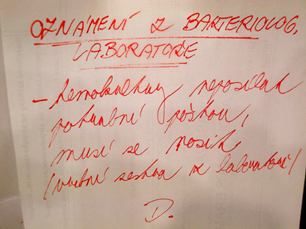 OZNÁMENÍ Z BAKTERIOLOG.
LABORATOŘE
- hemokultury neposílat
potrubní poštou,
musí se nosit
(vrchní sestra z laboratoře)
D.